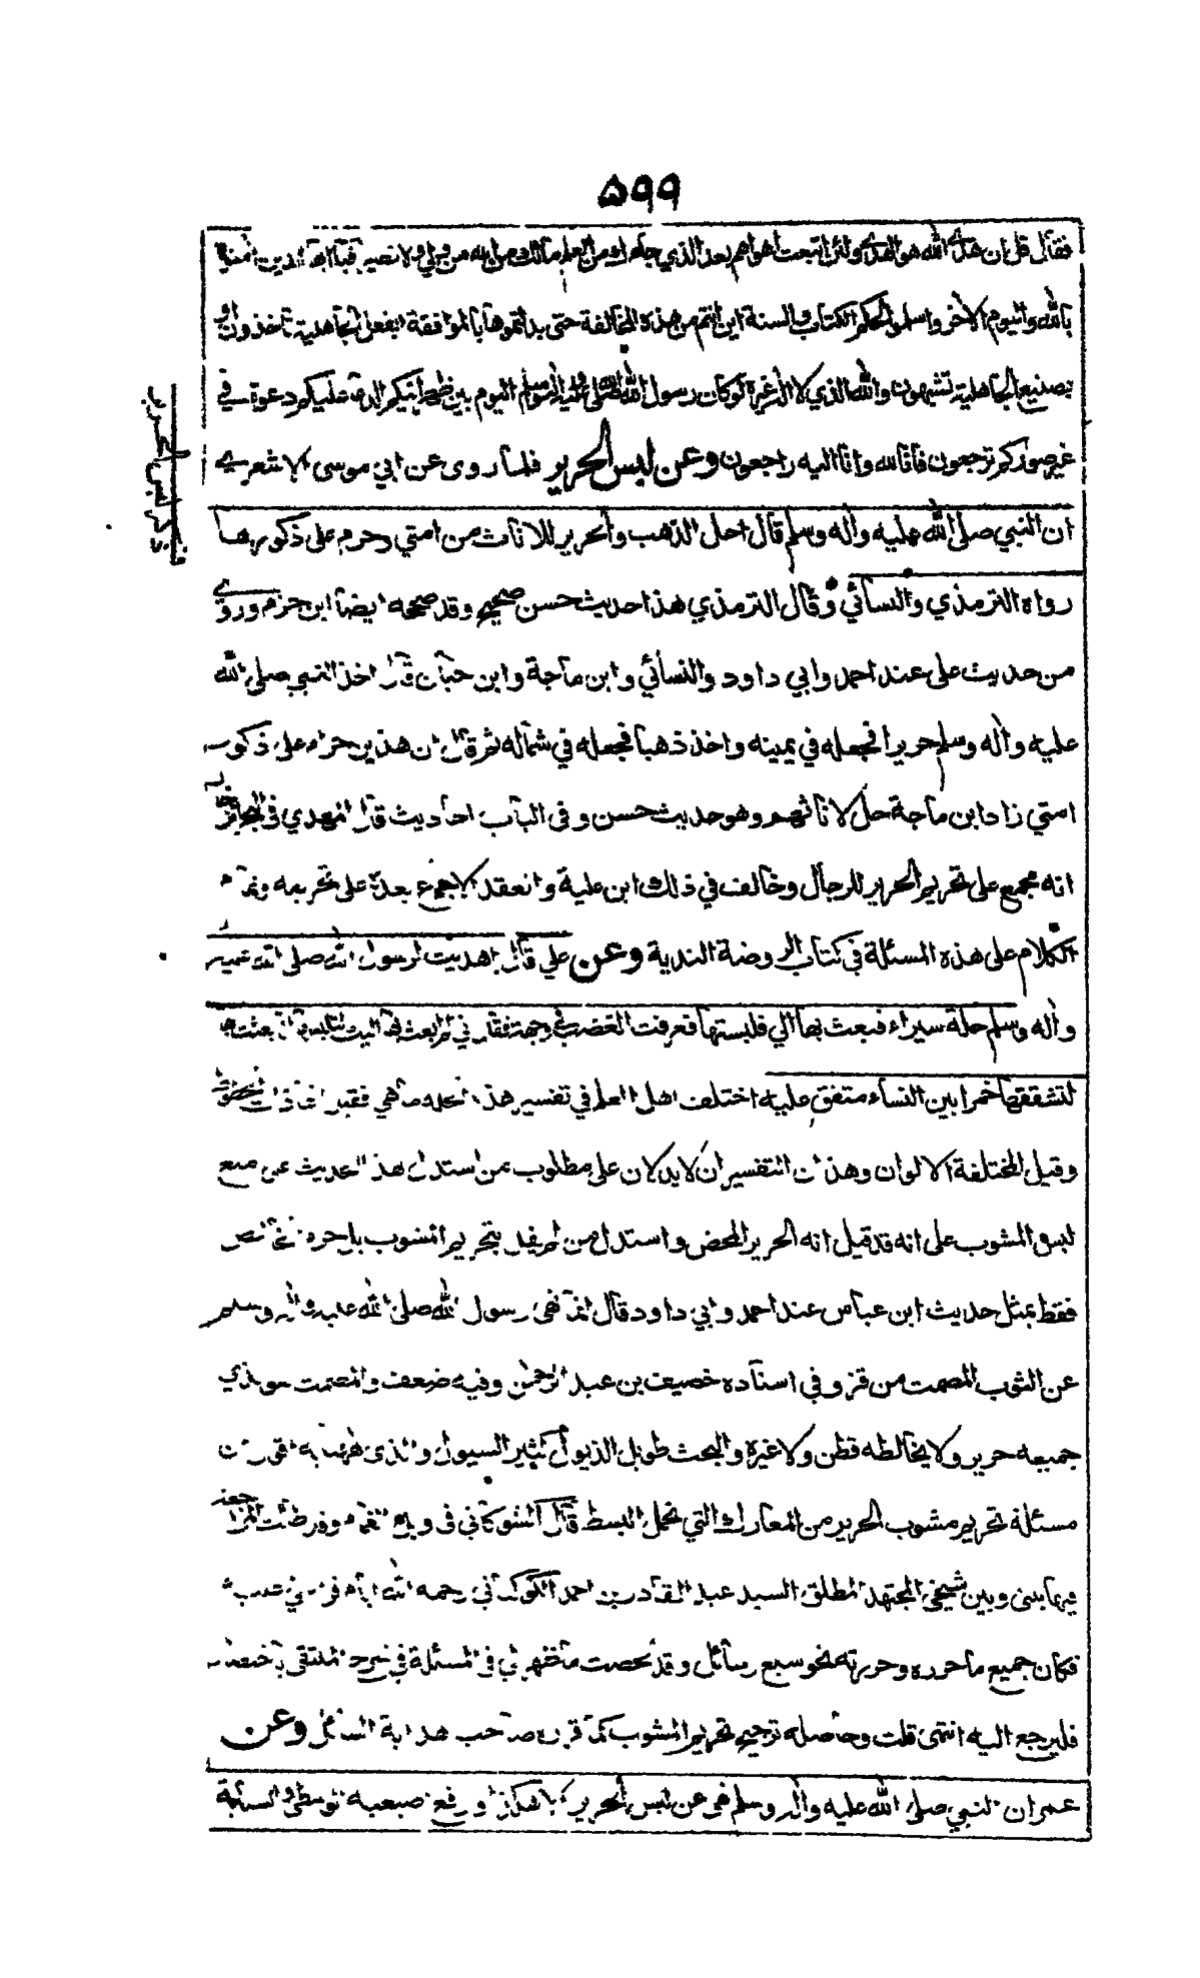 ۵۹۹
فقال قل ان هدى الله هو الهدى ولئن اتبعت اهواءهم بعد الذي جاءك من العلم مالك من الله من ولي ولا نصير فيا ايها الذين امنوا
بالله واليوم الآخر واسلموا لحكم الكتاب والسنة اين انتم من هذه المخالفة حتى بدلتموها بالموافقة ابفعل الجاهلية تأخذون او
بصنيع الجاهلية تشبهون والله الذي لا اله غيره لو كان رسول الله صلى الله عليه واله وسلم اليوم بين ظهرانيكم لدعا عليكم دعوة في
غير صوركم ترجعون فانا لله وانا اليه راجعون وعن لبس الحرير فلما روى عن ابي موسى الاشعري
ذكر لبس الحرير
ان النبي صلى الله عليه واله وسلم قال احل الذهب والحرير للاناث من امتي وحرم على ذكورها
رواه الترمذي والنسائي وقال الترمذي هذا حديث حسن صحيح وقد صححه ايضا ابن حزم وروي
من حديث علي عند احمد وابي داود والنسائي وابن ماجة وابن حبان قال اخذ النبي صلى الله
عليه واله وسلم حريرا فجعله في يمينه واخذ ذهبا فجعله في شماله ثم قال ان هذين حرام على ذكور
امتي زاد ابن ماجة حل لاناثهم وهو حديث حسن وفي الباب احاديث قال المهدي في البحر
انه مجمع على تحريم الحرير للرجال وخالف في ذلك ابن علية وانعقد الاجماع بعده على تحريمه وتمام
الكلام على هذه المسئلة في كتاب الروضة الندية وعن علي قال اهديت لرسول الله صلى الله عليه
واله وسلم حلة سيراء فبعث بها الي فلبستها فعرفت الغضب في وجهه فقال اني لم ابعث بها اليك لتلبسها انما بعثت بها
لتشققها خمرا بين النساء متفق عليه اختلف اهل العلم في تفسير هذه الحلة ما هي فقيل انها ذات الخطوط
وقيل المختلفة الالوان وهذان التفسيران لا يدلان على مطلوب من استدل بهذا الحديث على منع
لبس المشوب على انه قد قيل انه الحرير المحض واستدل من لم يقل بتحريم المشوب بل حرم الخالص
فقط بمثل حديث ابن عباس عند احمد وابي داود قال انما نهى رسول الله صلى الله عليه واله وسلم
عن الثوب المصمت من قز وفي اسناده خصيف بن عبد الرحمن وفيه ضعف والمصمت هو الذي
جميعه حرير ولا يخالطه قطن ولا غيره والبحث طويل الذيول كثير السيول والذي
مسئلة تحريم مشوب الحرير من المعارك التي تحمل البسط قال الشوكاني في وبل الغمام وقد طالت المراجعة
فيها بيني وبين شيخي المجتهد المطلق السيد عبد القادر بن احمد الكوكباني رحمه الله ايام قرأتي عليه
فكان جميع ما حرره وحررته نحو سبع رسائل وقد لخصت ما ظهر لي في المسئلة في شرح المنتقى باختصار
فليرجع اليه انتهى قلت وحاصله ترجيح تحريم المشوب كما قرره صاحب هداية السائل وعن
عمر ان النبي صلى الله عليه واله وسلم نهى عن لبس الحرير الا هكذا ورفع اصبعيه الوسطى والسبابة